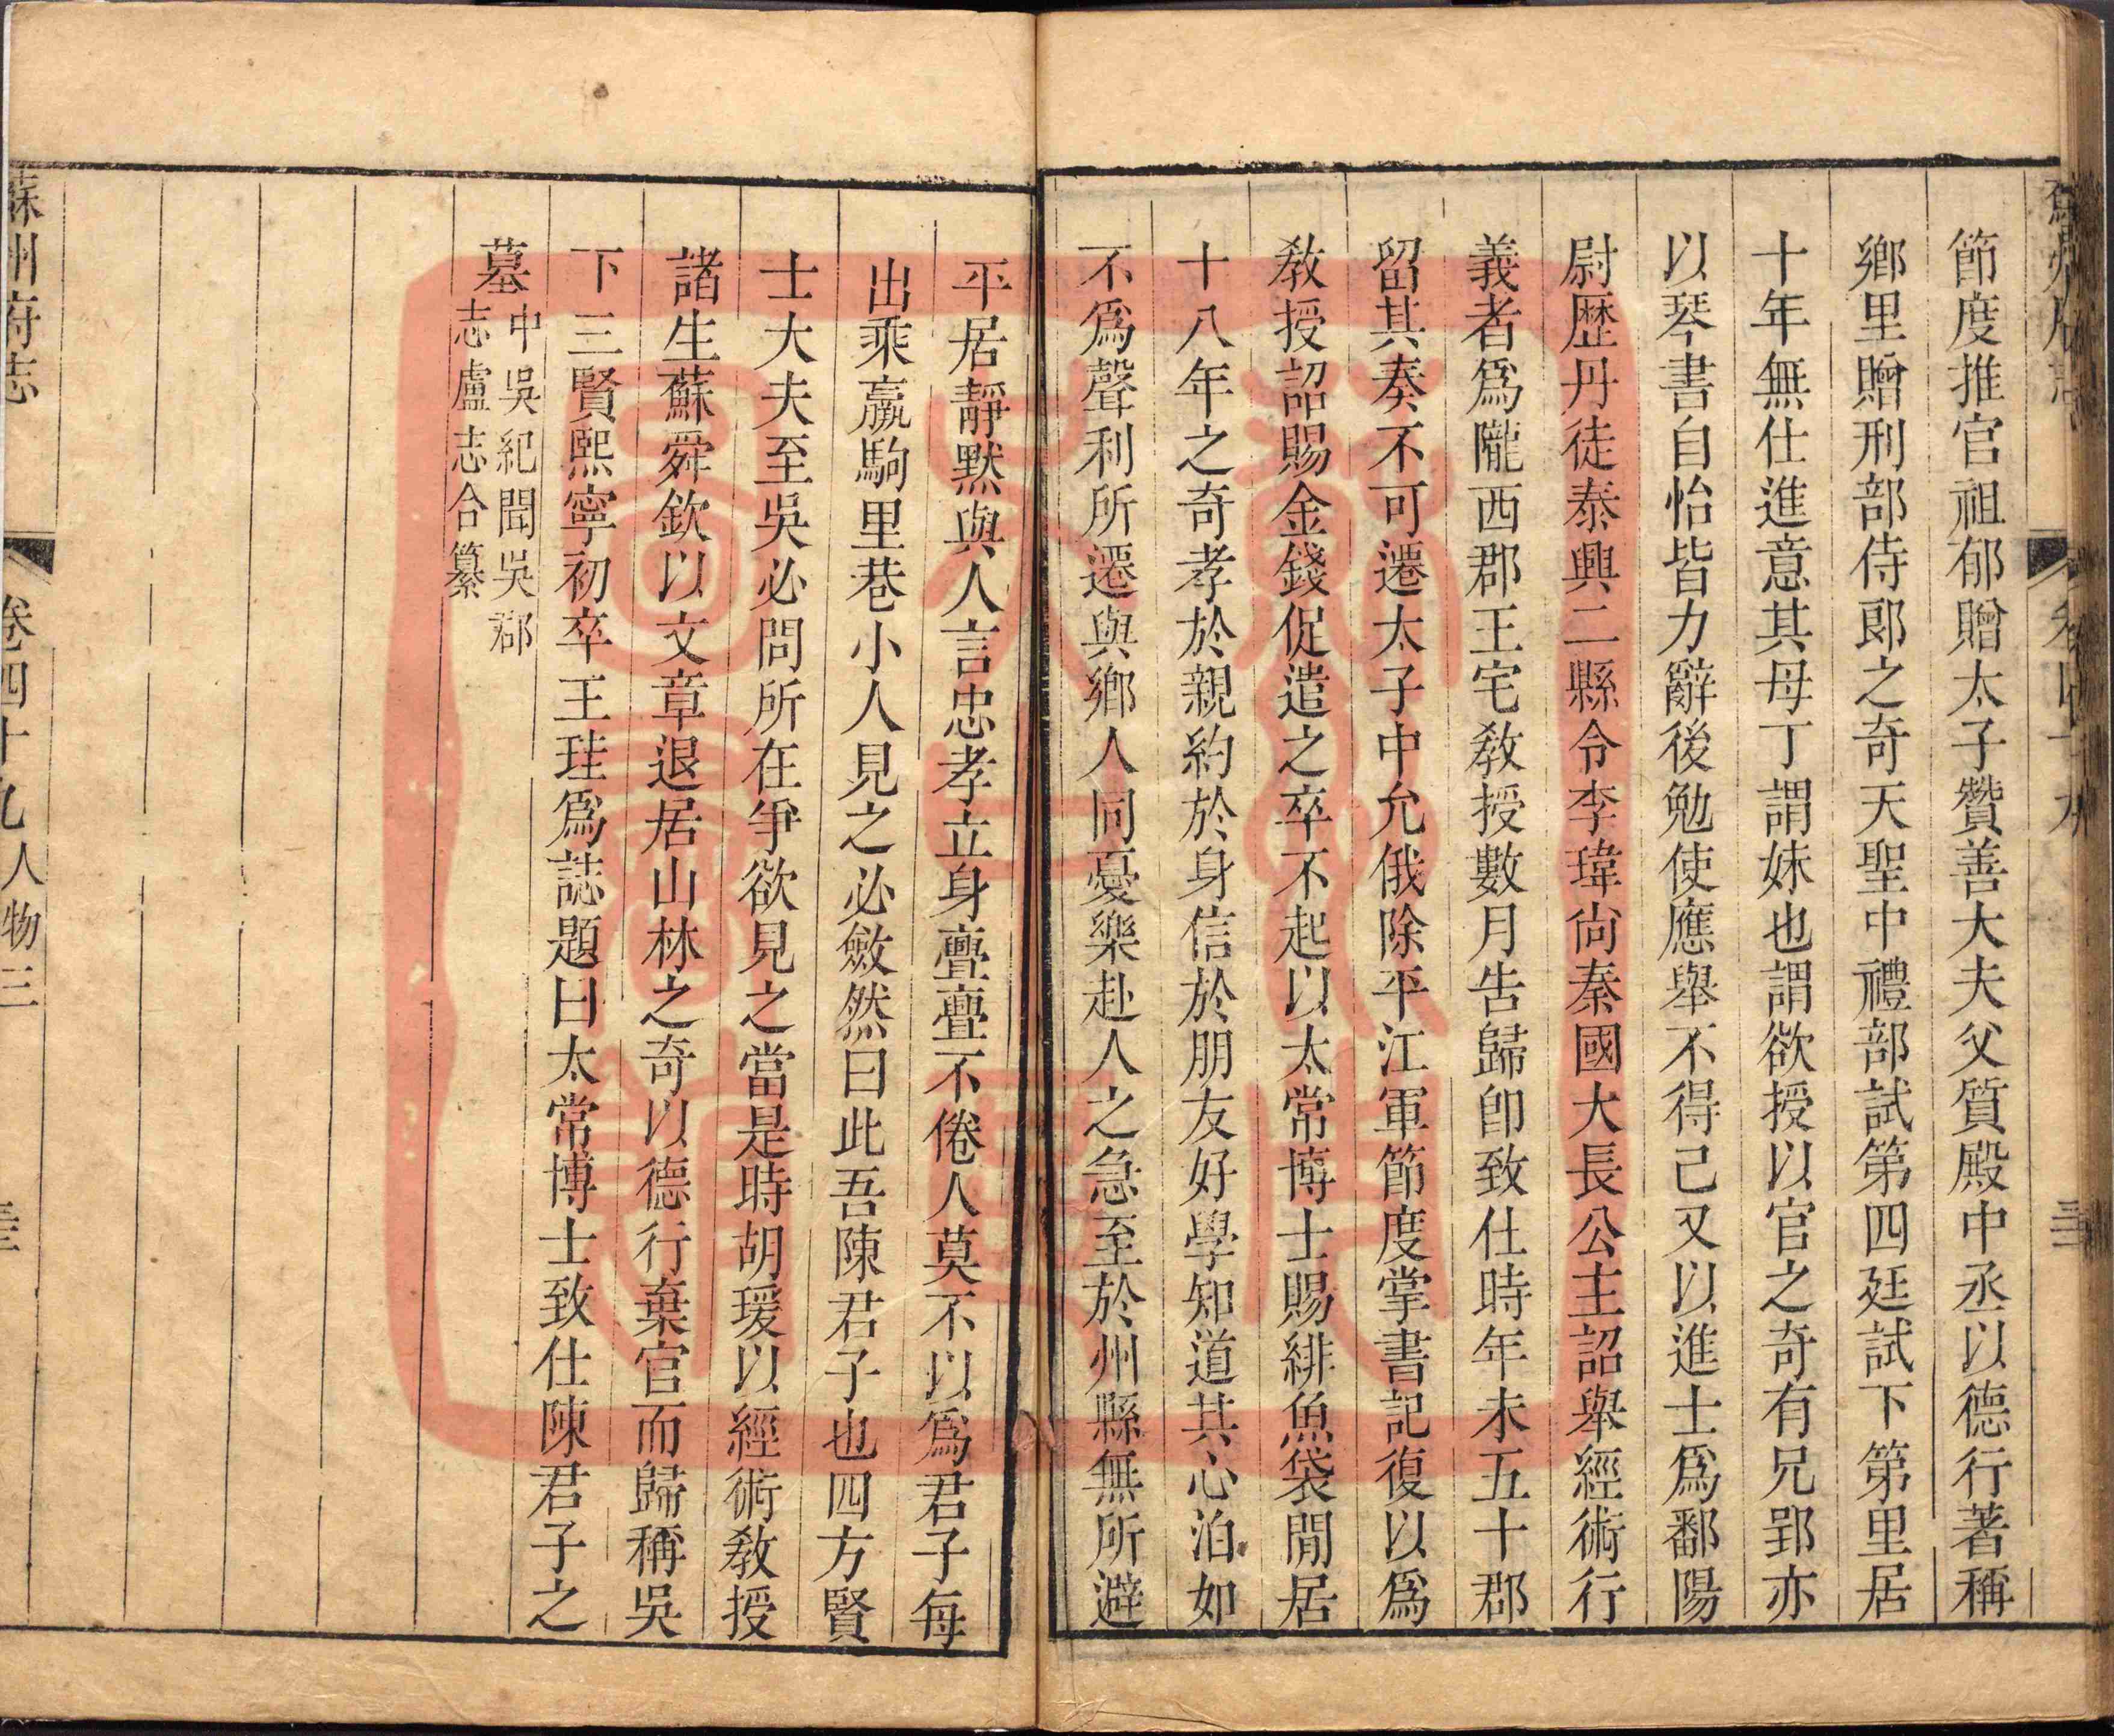 節度推官祖郁贈太子贊善大夫父質殿中丞以德行著稱
鄉里贈刑部侍郎之奇天聖中禮部試第四廷試下第里居
十年無仕進意其母丁謂妹也謂欲授以官之奇有兄郢亦
以琴書自怡皆力辭後勉使應舉不得已又以進士爲鄱陽
尉歷丹徒泰興二縣令李瑋尚秦國大長公主詔舉經術行
義者爲隴西郡王宅教授數月告歸卽致仕時年未五十郡
留其奏不可遷太子中允俄除平江軍節度掌書記復以爲
教授詔賜金錢促遣之卒不起以太常博士賜緋魚袋閒居
十八年之奇孝於親約於身信於朋友好學知道其心泊如
不爲聲利所遷與鄉人同憂樂赴人之急至於州縣無所避
平居靜默與人言忠孝立身亹亹不倦人莫不以爲君子每
出乘羸駒里巷小人見之必斂然曰此吾陳君子也四方賢
士大夫至吳必問所在爭欲見之當是時胡瑗以經術教授
諸生蘇舜欽以文章退居山林之奇以德行棄官而歸稱吳
下三賢熙寧初卒王珪爲誌題曰太常博士致仕陳君子之
墓中吳紀聞吳郡志盧志合纂
蘇州府志 卷四十九人物三